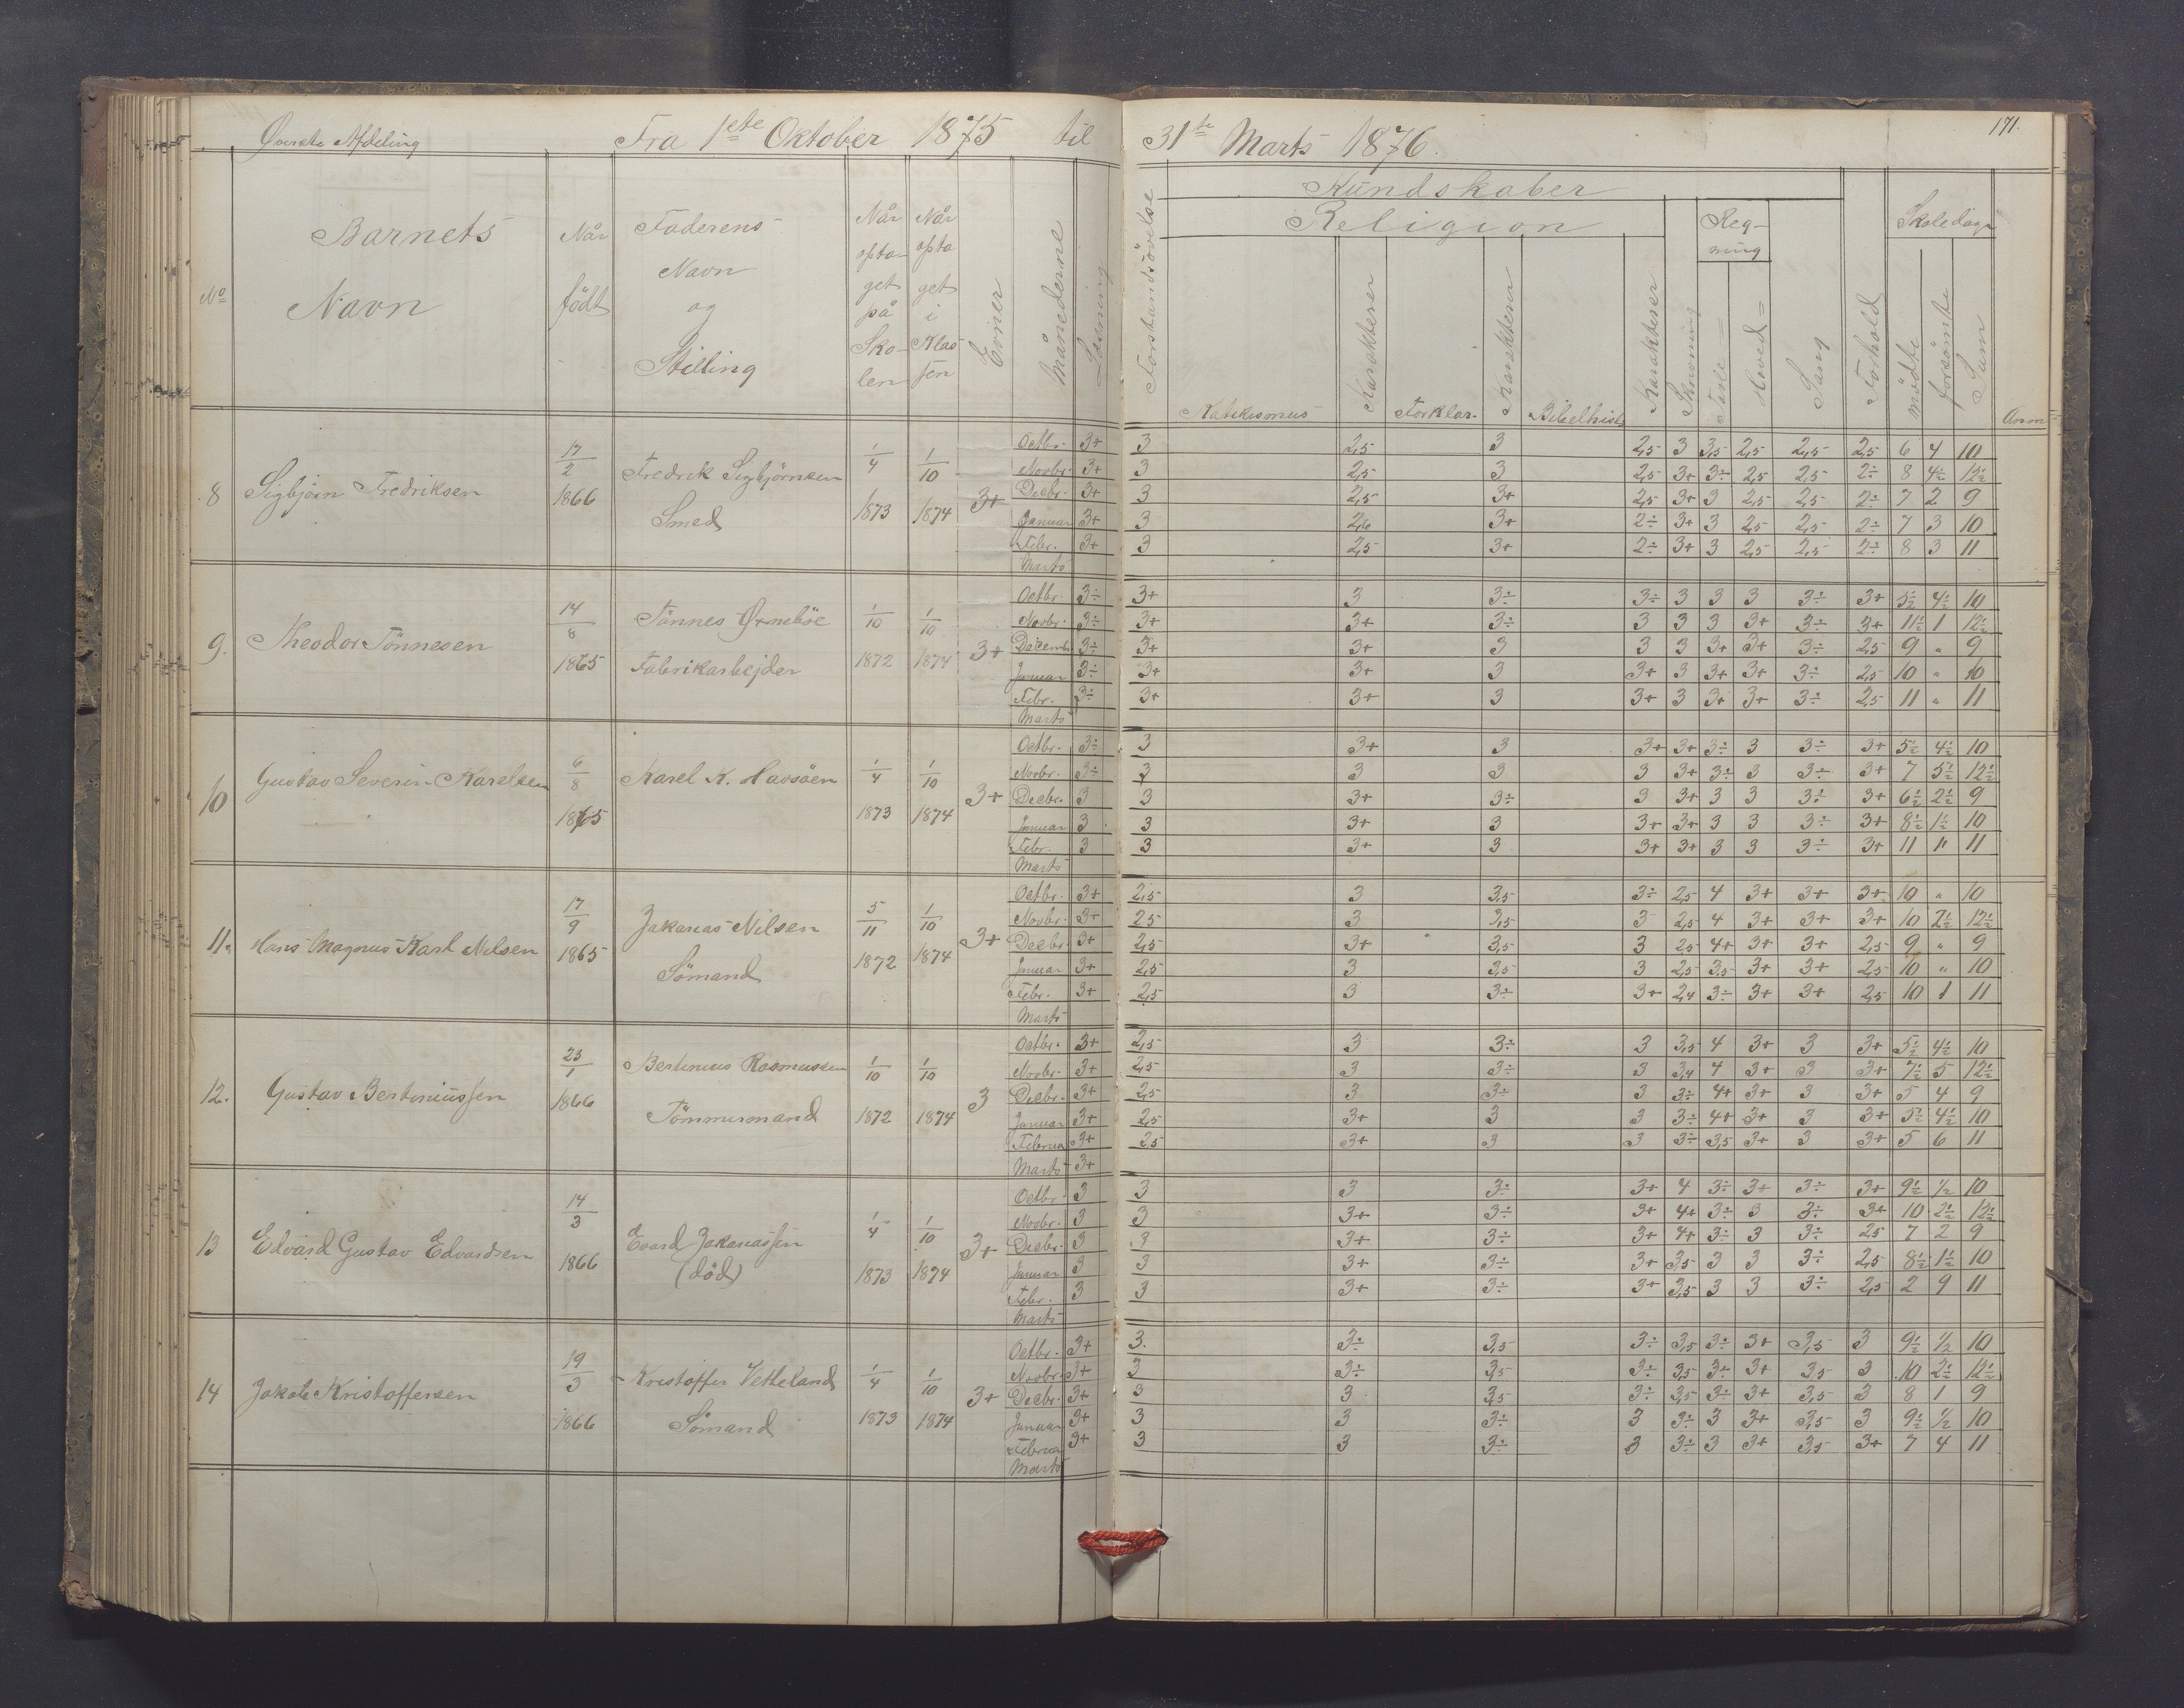 Øverste Afdeling Fra 1ste Oktober 1875 til 31te Marts 1876. 171.
No Barnets Navn Når født Faderens Navn og Stilling Når optaget på Skolen Når optaget i Klassen Evner Månederne Læsning Forstandsövelse Kundskaber Religion Katekismus Karakterer Forklar. Karakterer Bibelhist. Karakterer Skrivning Regning Tavle= Hoved= Sang Forhold Skoledage mödte forsömte Sum Anm
8 Sigbjörn Fredriksen 17/2 1866 Fredrik Sigbjörnsen Smed 1/4 1873 1/10 1874 3+
Octbr. 3+ 3 2,5 3 2,5 3 3,5 2,5 2,5 2,5 6 4 10
Novbr. 3+ 3 2,5 3 2,5 3+ 3÷ 2,5 2,5 2÷ 8 4½ 12½
Decbr. 3+ 3 2,5 3+ 2,5 3+ 3 2,5 2,5 2÷ 7 2 9
Januar 3+ 3 2,6 3+ 2÷ 3+ 3 2,5 2,5 2÷ 7 3 10
Febr. 3+ 3 2,5 3+ 2÷ 3+ 3 2,5 2,5 2÷ 8 3 11
Marts
9. Theodor Tönnesen 14/8 1865 Tönnes Ørneböe Fabrikarbejder 1/10 1872 1/10 1874 3+
Octbr. 3÷ 3+ 3 3÷ 3÷ 3 3 3 3÷ 3+ 5½ 4½ 10
Novbr. 3÷ 3+ 3+ 3÷ 3 3 3 3+ 3÷ 3+ 11½ 1 12½
Decembr 3÷ 3+ 3+ 3 3 3 3+ 3+ 3÷ 2,5 9 „ 9
Januar 3÷ 3+ 3+ 3 3+ 3 3+ 3+ 3÷ 2,5 10 „ 10
Febr. 3÷ 3+ 3+ 3 3+ 3 3+ 3+ 3÷ 2,5 11 „ 11
Marts
10 Gustav Severin Karelsen 6/8 1865 Karel K. Havsöen 1/4 1873 1/10 1874 3+
Octbr. 3÷ 3 3+ 3 3+ 3+ 3÷ 3 3÷ 3+ 5½ 4½ 10
Novbr. 3÷ 3 3 3 3 3+ 3÷ 3 3÷ 3+ 7 5½ 12½
Decbr. 3 3 3+ 3÷ 3 3+ 3 3 3÷ 3+ 6½ 2½ 9
Januar 3 3 3+ 3 3+ 3+ 3 3 3÷ 3+ 8½ 1½ 10
Febr. 3 3 3+ 3 3+ 3+ 3 3 3÷ 3+ 11 „ 11
Marts
11. Hans Magnus Karl Nilsen 17/9 1865 Zakarias Nilsen Sömand 5/11 1872 1/10 1874 3+
Octbr. 3+ 2,5 3 3,5 3÷ 2,5 4 3+ 3+ 3+ 10 „ 10
Novbr. 3+ 2,5 3 3,5 3 2,5 4 3+ 3+ 3+ 10 2½ 12½
Decbr. 3+ 2,5 3+ 3,5 3 2,5 4+ 3+ 3+ 2,5 9 „ 9
Januar 3+ 2,5 3 3,5 3 2,5 3,5 3+ 3+ 2,5 10 „ 10
Febr. 3+ 2,5 3 3÷ 3+ 2,4 3÷ 3+ 3+ 2,5 10 1 11
Marts
12. Gustav Bertiniussen 23/1 1866 Bertinius Rasmussen Tömmermand 1/10 1872 1/10 1874 3
Octbr. 3+ 2,5 3 3÷ 3 3,5 4 3+ 3 3+ 5½ 4½ 10
Novbr. 3+ 2,5 3 3÷ 3 3,4 4 3+ 3 3+ 7½ 5 12½
Decbr. 3+ 2,5 3 3÷ 3 3÷ 4+ 3+ 3 3+ 5 4 9
Januar 3+ 2,5 3+ 3 3 3÷ 4+ 3+ 3 3+ 5½ 4½ 10
Februa 3+ 2,5 3+ 3 3 3÷ 3,5 3+ 3 3+ 5 6 11
Marts 3+
13 Edvard Gustav Edvardsen 14/3 1866 Evard Zakariassen (död) 1/4 1873 1/10 1874 3+
Octbr. 3 3 3 3÷ 3+ 4 3÷ 3+ 3÷ 3+ 9½ ½ 10
Novbr. 3 3 3+ 3÷ 3+ 4+ 3÷ 3 3÷ 3+ 10 2½ 12½
Decbr. 3 3 3+ 3÷ 3+ 4+ 3÷ 3 3÷ 2,5 7 2 9
Januar 3 3 3+ 3÷ 3+ 3,5 3 3 3÷ 2,5 8½ 1½ 10
Febr. 3 3 3+ 3÷ 3+ 3,5 3 3 3÷ 2,5 2 9 11
Marts
14 Jakob Kristoffersen 19/3 1866 Kristoffer Vetteland Sömand 1/4 1873 1/10 1874 3+
Octbr. 3+ 3. 3÷ 3,5 3÷ 3,5 3÷ 3+ 3,5 3 9½ ½ 10
Novbr. 3+ 3 3÷ 3,5 3÷ 3,5 3÷ 3+ 3,5 3 10 2½ 12½
Decbr. 3+ 3 3 3,5 3÷ 3,5 3÷ 3+ 3,5 3 8 1 9
Januar 3+ 3 3 3÷ 3 3÷ 3 3+ 3,5 3 9½ ½ 10
Februar 3+ 3 3 3÷ 3 3÷ 3 3+ 3,5 3+ 7 4 11
Marts